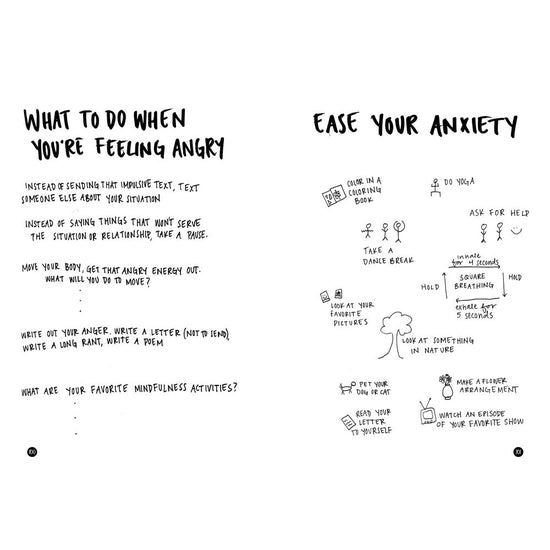 WHAT TO DO WHEN
YOU'RE FEELING ANGRY
INSTEAD OF SENDING THAT IMPULSIVE TEXT, TEXT
SOMEONE ELSE ABOUT YOUR SITUATION
INSTEAD OF SAYING THINGS THAT WON'T SERVE
THE SITUATION OR RELATIONSHIP, TAKE A PAUSE.
MOVE YOUR BODY, GET THAT ANGRY ENERGY OUT.
WHAT WILL YOU DO TO MOVE?
WRITE OUT YOUR ANGER. WRITE A LETTER (NOT TO SEND),
WRITE A LONG RANT, WRITE A POEM
WHAT ARE YOUR FAVORITE MINDFULNESS ACTIVITIES?
100
EASE YOUR ANXIETY
COLOR IN A
COLORING
BOOK
DO YOGA
TAKE A
DANCE BREAK
ASK FOR HELP
inhale
for 4 seconds
HOLD
SQUARE
BREATHING
HOLD
exhale for
5 seconds
LOOK AT YOUR
FAVORITE
PICTURES
LOOK AT SOMETHING
IN NATURE
PET YOUR
DOG OR CAT
MAKE A FLOWER
ARRANGEMENT
READ YOUR
LETTER
TO YOURSELF
WATCH AN EPISODE
OF YOUR FAVORITE SHOW
101